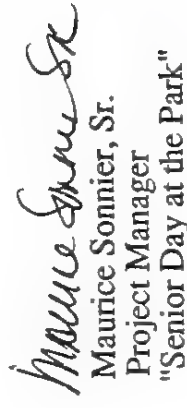 Maurice Sonnier Sr
Maurice Sonnier, Sr.
Project Manager
"Senior Day at the Park"